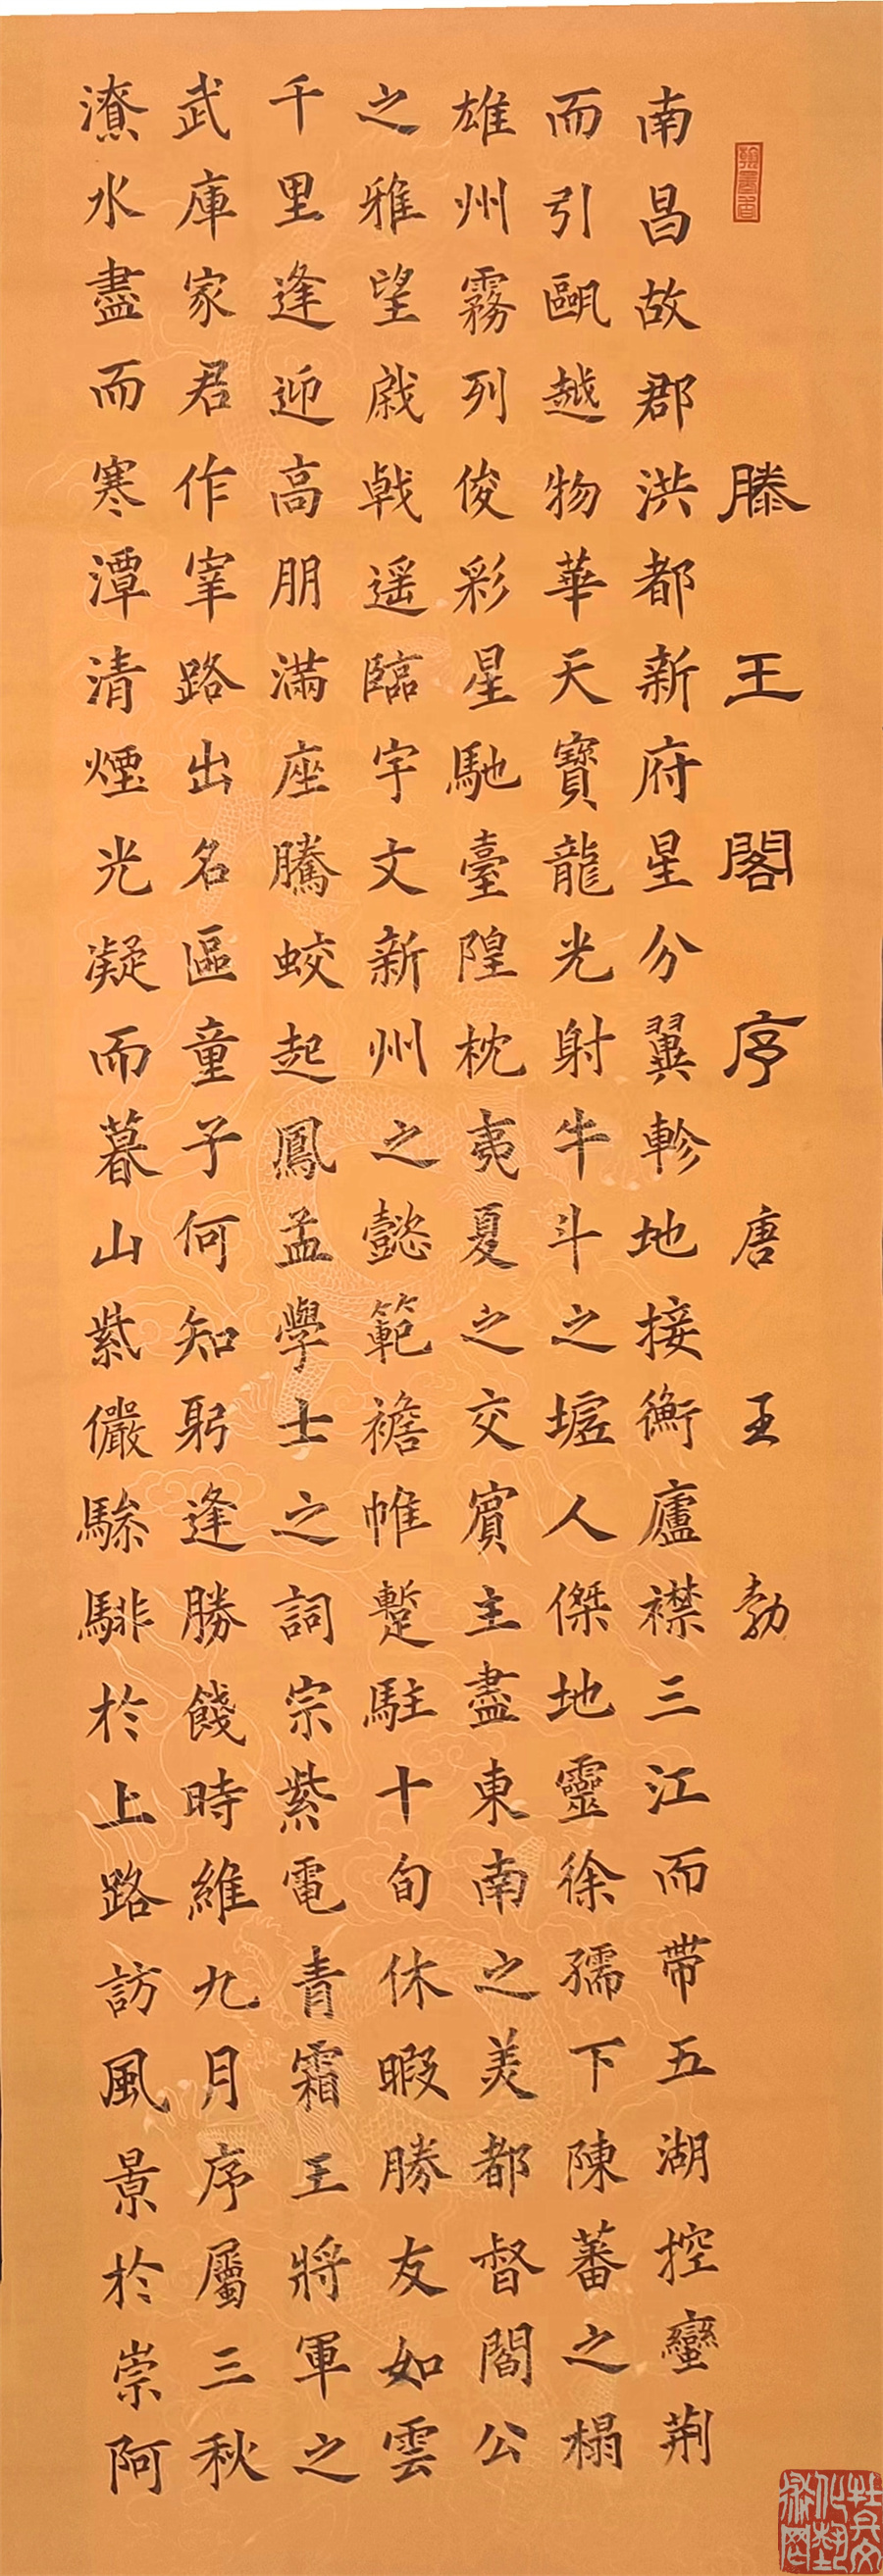 翰墨香
滕王閣序 唐 王勃
南昌故郡洪都新府星分翼軫地接衡廬襟三江而帶五湖控蠻荊
而引甌越物華天寶龍光射牛斗之墟人傑地靈徐孺下陳蕃之榻
雄州霧列俊彩星馳臺隍枕夷夏之交賓主盡東南之美都督閻公
之雅望戚戟遥臨宇文新州之懿範襜帷暫駐十旬休暇勝友如雲
千里逢迎高朋滿座騰蛟起鳳孟學士之詞宗紫電青霜王將軍之
武庫家君作宰路出名區童子何知躬逢勝餞時維九月序屬三秋
潦水盡而寒潭清煙光凝而暮山紫儼驂騑於上路訪風景於崇阿